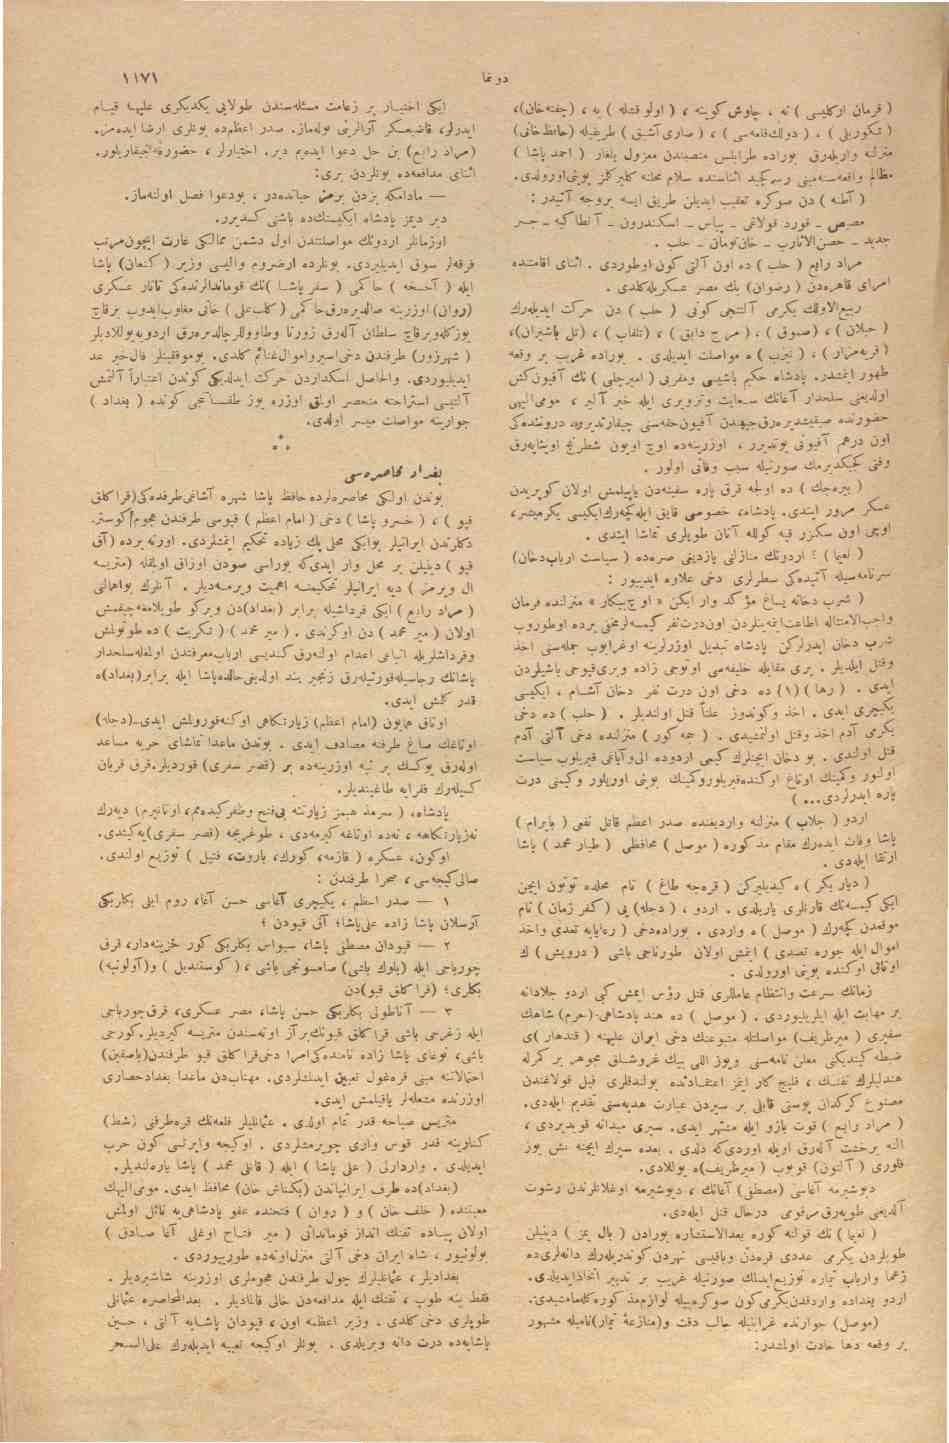 دونما
١١٧١
( فرمان اركليسى ) نه ، چاوش كوينه ، ( اولو قشله ) يه ، (چفته‌خان)،
منزلنه واريله‌رق بوراده طرابلس منصبندن معزول يلغار ( احمد پاشا )
( آطنه ) دن صوكره تعقيب ايديلن طريق ايسه بروجه آتيدر :
مصيص ـ قورد قولاغى ـ پياس ـ اسكندرون ـ آنطاكيه ـ جسر
جديد ـ حصن‌الاثارب ـ خان‌تومان ـ حلب .
مراد رابع ( حلب ) ده اون آلتى كون اوطوردى . اثناى اقامتنده
امراى قاهره‌دن ( رضوان) بك مصر عسكريله‌كلدى .
ربيع‌الاولك يكرمى آلتنجى كونى ( حلب ) دن حركت ايديله‌رك
( حيلان ) ، (صموق) ، ( مرج دابق ) ، ( تلقاب ) ، (تل باشيران)،
ظهور ايتمشدر. پادشاه حكيم باشيسى ومقربى ( اميرچلبى ) نك آفيون‌كش
اولديغنى سلحدار آغانك سعايت وتزويرى ايله خبر آلير ، مومى‌اليهى
اون درهم آفيونى يوتديرر ، اوزرينه‌ده اوچ اويون شطرنج اويناياه‌رق
وقتى كچيكديرمك صورتيله سبب وفاتى اولور .
( بيره‌جك ) ده اولجه قرق پاره سفينه‌دن ياپيلمش اولان كوپريدن
عسكر مرور ايتدى. پادشاه، خصوصى قايق ايله‌كچه‌رك‌ايكيسى يكرميشر،
اوچى اون سكزر قيه كولله آتان طوپلرى تماشا ايتدى .
( نعيما ) : اردونك منازلنى يازديغى صره‌ده ( سياست ارباب‌دخان)
سرنامه‌سيله آتيده‌كى سطرلرى دخى علاوه ايدييور :
( شرب دخانه يساغ مؤكد وار ايكن « اوچ‌بيكار » منزلنده فرمان
واجب‌الامتثاله اطاعت‌ايتمه‌ينلردن اون‌درت‌نفر كيمسه‌لرمخفى يرده اوطوروب
شرب دخان ايدرلركن پادشاه تبديل اوزرلرينه اوغرايوب جمله‌سنى اخذ
وقتل ايلديلر . برى مقابله خليفه‌سى اوتوجى زاده وبرى‌قيوجى باشيلردن
ايدى . ( رها ) (١) ده دخى اون درت نفر دخان آشام ، ايكيسى
يكيچرى ايدى . اخذ وكوندوز علناً قتل اولنديلر . ( حلب ) ده دخى
يكرمى آدم اخذ وقتل اولنمشيدى . ( جمه كور ) منزلنده دخى آلتى آدم
قتل اولندى . بو دخان ايچنلرك كيمى اردوده الى‌وآياغى قيريلوب سياست
پاره ايدرلردى... )
اردو ( جلاب ) منزلنه وارديغنده صدر اعظم قاتل نفعى ( بايرام )
پاشا وفات ايده‌رك مقام مذكوره ( موصل ) محافظى ( طيار محمد ) پاشا
ارتقا ايله‌دى .
( ديار بكر ) ه كيديليركن ( قره‌جه طاغ ) نام محلده توتون ايچن
ايكى كيمسه‌نك قارنلرى ياريلدى . اردو ، ( دجله) يى ( كفر زمان ) نام
موقعدن كچه‌رك ( موصل ) ه واردى . بوراده‌دخى ( رعايايه تعدى واخذ
اموال ايله جوره تصدى ) ايتمش اولان طورناجى باشى ( درويش ) ك
اوتاق اوكنده بوينى اورولدى .
زمانك سرعت وانتظام عاملارى قتل رؤس ايمش كبى اردو جلادانه
بر مهابت ايله ايلريليوردى . ( موصل ) ده هند پادشاهى (خرم) شاهك
سفيرى ( ميرظريف) مواصلتله متبوعنك دخى ايران عليهنه ( قندهار )ى
ضبطه كيتديكى معلن نامه‌سنى ويوز اللى بيك غروشلق مجوهر بر كمرله
مصنوع كركدان پوستى قابلى بر سپردن عبارت هديه‌سنى تقديم ايله‌دى.
( مراد رابع ) قوت بازو ايله مشتهر ايدى. سپرى ميدانه قويديردى ،
فلورى ( آلتون ) قويوب ( ميرظريف)ه يوللادى.
ديوشيرمه آغاسى (مصطفى) آغانك ، ديوشيرمه اوغلانلرندن رشوت
آلديغنى طويه‌رق مرقومى درحال قتل ايله‌دى.
( نعيما ) نك قولنه كوره بعدالاستشاره بورادن ( بال يمز ) دينيلن
طوپلردن يكرمى عددى قره‌دن وباقيسى نهردن كوندريله‌رك دانه‌لرى‌ده
زعما وارباب تيماره توزيع‌ايدلك صورتيله غريب بر تدبير اتخاذايديلدى.
اردو بغداده واردقدن يكرمى‌كون صوكرمبيله لوازم‌مذكوره كله‌مامشيدى.
(موصل) جوارنده غرابتيله جالب دقت و(منازعۀ تيمار)ناميله مشهور
بر وقعه دها حادث اولمشدر:
ايكى اختيار بر زعامت مسئله‌سندن طولايى يكديكرى عليهنه قيام
ايدرلر، قاضيعسكر آرالرينى بوله‌ماز. صدر اعظم‌ده بونلرى ارضا ايده‌مز.
(مراد رابع) بن حل دعوا ايده‌يم دير. اختيارلر ، حضورينه چيقاريلور.
اثناى مدافعه‌ده بونلردن برى:
— مادامكه بزدن بريمز حياتده‌در ، بودعوا فصل اولنه‌ماز.
دير ديمز پادشاه ايكيسنك‌ده باشنى كسديرر.
اوزمانلر اردونك مواصلتندن اول دشمن ممالكنى غارت ايچون‌مرتب
فرقه‌لر سوق ايديليردى. بونلرده ارضروم واليسى وزير ( كنعان) پاشا
ايله ( آخسخه ) حاكمى ( سفر پاشا ) نك قوماندالرنده‌كى تاتار عسكرى
(روان) اوزرينه صالديره‌رق‌حاكمى ( كلب‌على ) خانى مغلوب‌ايدوب برقاچ
( شهرزور) طرفندن دخى‌اسيرواموال‌غنائم كلدى. بوموفقيتلر فال‌خير عد
ايديليوردى. والحاصل اسكداردن حركت ايدلديكى كوندن اعتباراً آلتمش
آلتيسى استراحته منحصر اولمق اوزره يوز طقسانجى كونده ( بغداد )
جوارينه مواصلت ميسر اولدى.
* * *
بغداد محاصره‌سى
بوندن اولكى محاصره‌لرده حافظ پاشا شهره آشاغى‌طرفده‌كى(قراكلق
قپو ) ، ( خسرو پاشا ) دخى ( امام اعظم ) قپوسى طرفندن هجوم‌كوستر.
دكلرندن ايرانيلر بوايكى محلى پك زياده تحكيم ايتمشلردى. اورته يرده (آق
قپو ) دينيلن بر محل وار ايدى‌كه بوراسى صودن اوزاق اولمغله (متريسه
ال ويرمز ) ديه ايرانيلر تحكيمنه اهميت ويرمه‌ديلر . آنلرك بواهمالنى
( مراد رابع ) ايكى قرداشيله برابر (بغداد)دن ويركو طوپلامغه‌چيقمش
اولان ( مير محمد ) دن اوكرندى . ( مير محمد ) ( تكريت ) ده طوتولمش
وقرداشلريله اتباعى اعدام اولنه‌رق كنديسى ارباب‌معرفتدن اولمغله‌سلحدار
پاشانك رجاسيله‌قورتيله‌رق زنجير بند اولديغى‌حالده‌پاشا ايله برابر(بغداد)ه
قدر كلمش ايدى.
اوتاق همايون (امام اعظم) زيارتكاهى اوكنه‌قورولمش ايدى.(دجله)
اوتاغك صاغ طرفنه مصادف ايدى . بوندن ماعدا تماشاى حربه مساعد
اوله‌رق يوكسك بر تپه اوزرينه‌ده بر (قصر سفرى) قورديلر.قرق قربان
كسيله‌رك فقرايه طاغيتديلر.
نه‌زيارتكاهه ، نه‌ده اوتاغه كيرمه‌دى ، طوغريجه (قصر سفرى)يه‌كيتدى.
اوكون، عسكره ( قازمه، كورك، باروت، فتيل ) توزيع اولندى.
صالى‌كيجه‌سى ، صحرا طرفندن :
١ — صدر اعظم ، يكيچرى آغاسى حسن آغا، روم ايلى بكلربكى
آرسلان پاشا زاده على‌پاشا؛ آق قپودن ؛
٢ — قپودان مصطفى پاشا، سيواس بكلربكى كور خزينه‌دار، قرق
چورباجى ايله (بلوك باشى) صامسونجى باشى ، ( كوستنديل ) و(آولونيه)
بكلرى؛ (قراكلق قپو)دن
٣ — آناطولى بكلربكى حسن پاشا، مصر عسكرى، قرق‌چورباجى
ايله زغرجى باشى قراكلق قپونك‌برآز اوته‌سندن متريسه كيرديلر.كورجى
باشى، نوغاى پاشا زاده نامنده‌كى‌امرا دخى‌قراكلق قپو طرفندن(ياصفين)
احتمالاتنه مبنى قره‌غول تعيين ايدلمشلردى. مهتاب‌دن ماعدا بغدادحصارى
اوزرنده مشعله‌لر ياقيلمش ايدى.
متريس صباحه قدر تمام اولدى . عثمانليلر قلعه‌نك قره‌طرفنى (شط)
كنارينه قدر قوس وارى چويرمشلردى . اوكيجه وايرتسى كون حرب
ايديلدى . واردارلى ( على پاشا ) ايله ( قانلى محمد ) پاشا ياره‌لنديلر.
(بغداد)ده طرف ايرانياندن (بكتاش خان) محافظ ايدى. مومى‌اليهك
معيتنده ( خلف خان ) و ( روان ) فتحنده عفو پادشاهى‌يه نائل اولمش
اولان پياده تفنك انداز قوماندانى ( مير فتاح اوغلى آغا صادق )
بولونيور ، شاه ايران دخى آلتى منزل‌اوته‌ده طورييوردى .
بغداديلر ، عثمانليلرك چول طرفندن هجوملرى اوزرينه شاشيرديلر .
فقط ينه طوپ ، تفنك ايله مدافعه‌دن خالى قالماديلر . بعدالمحاصره عثمانلى
طوپلرى دخى كلدى . وزير اعظمه اون ، قپودان پاشايه آلتى ، حسين
پاشايه‌ده درت دانه ويريلدى . بونلر اوكيجه تعبيه ايديله‌رك على‌السحر